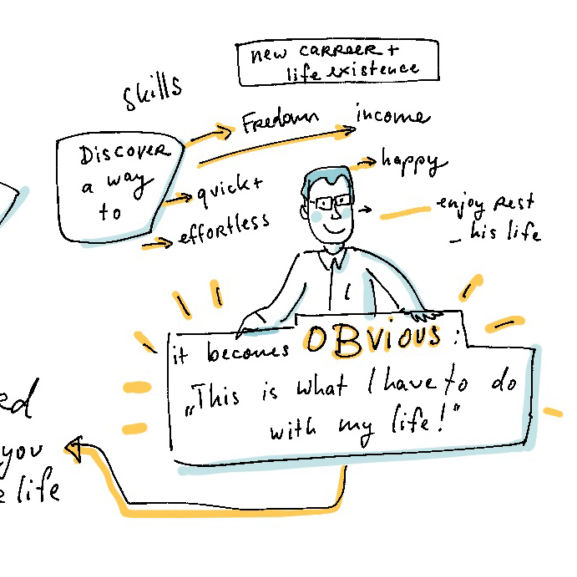 new carreer +
life existence
Skills
Freedom
income
Discover
a way
to
quick +
effortless
happy
enjoy rest
his life
it becomes OBVIOUS :
„This is what I have to do
with my life!"
ed
you
e life